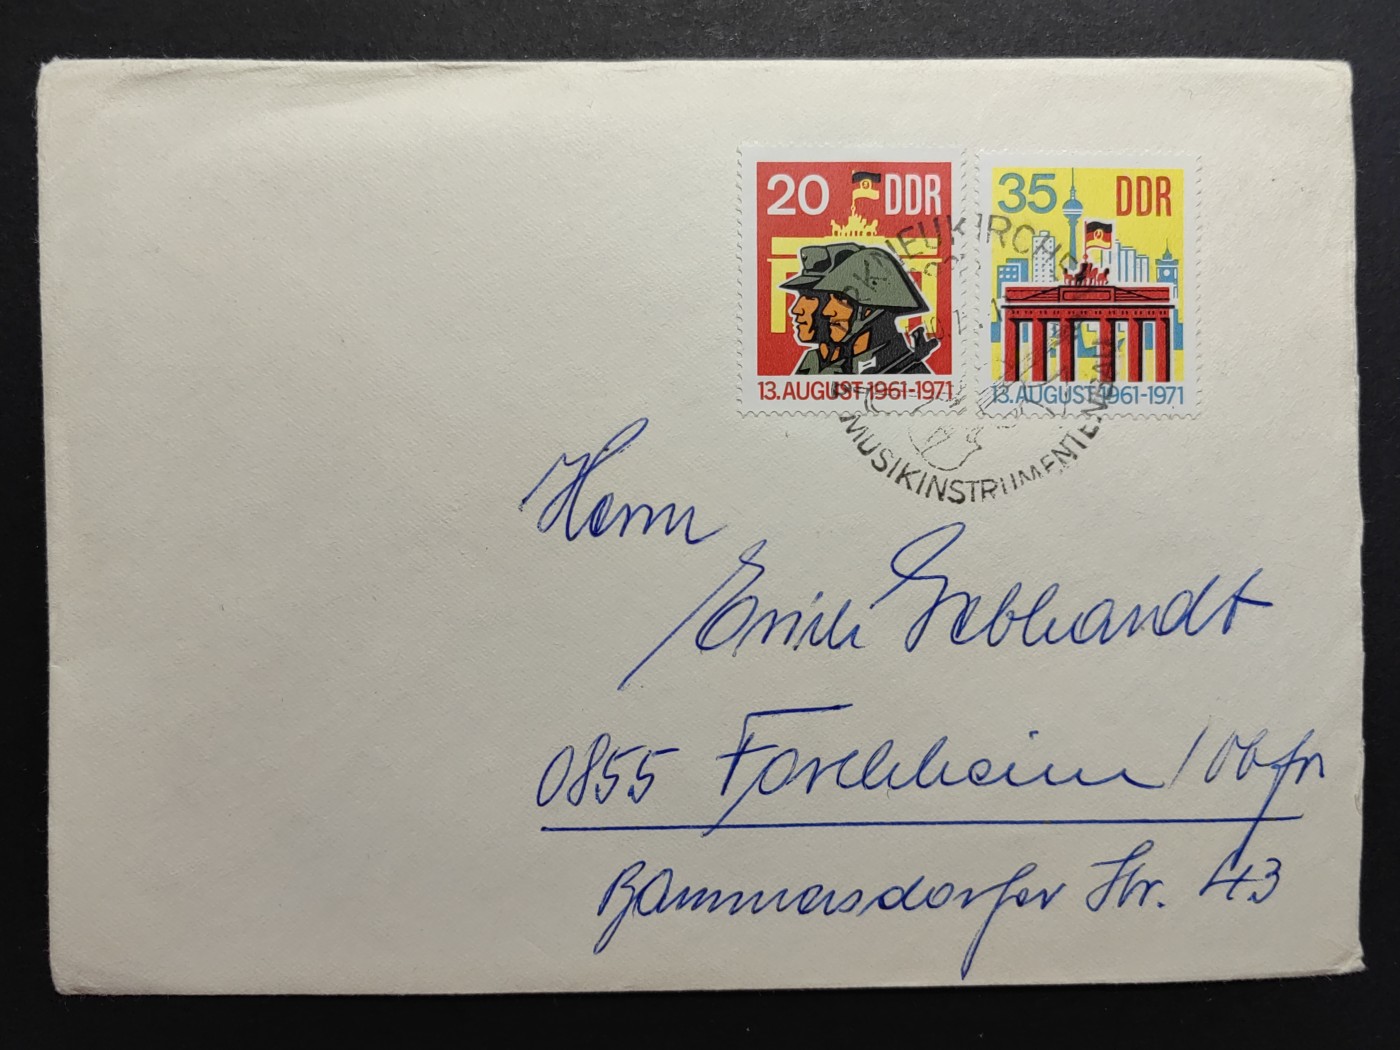 20 DDR
13. AUGUST 1961-1971
35 DDR
13. AUGUST 1961-1971
NEUKIRCHE
MUSIKINSTRUMENTENBAU
Herrn
Gebhardt
0855 Forchheim / Obfr
Bammersdorfer Str. 43